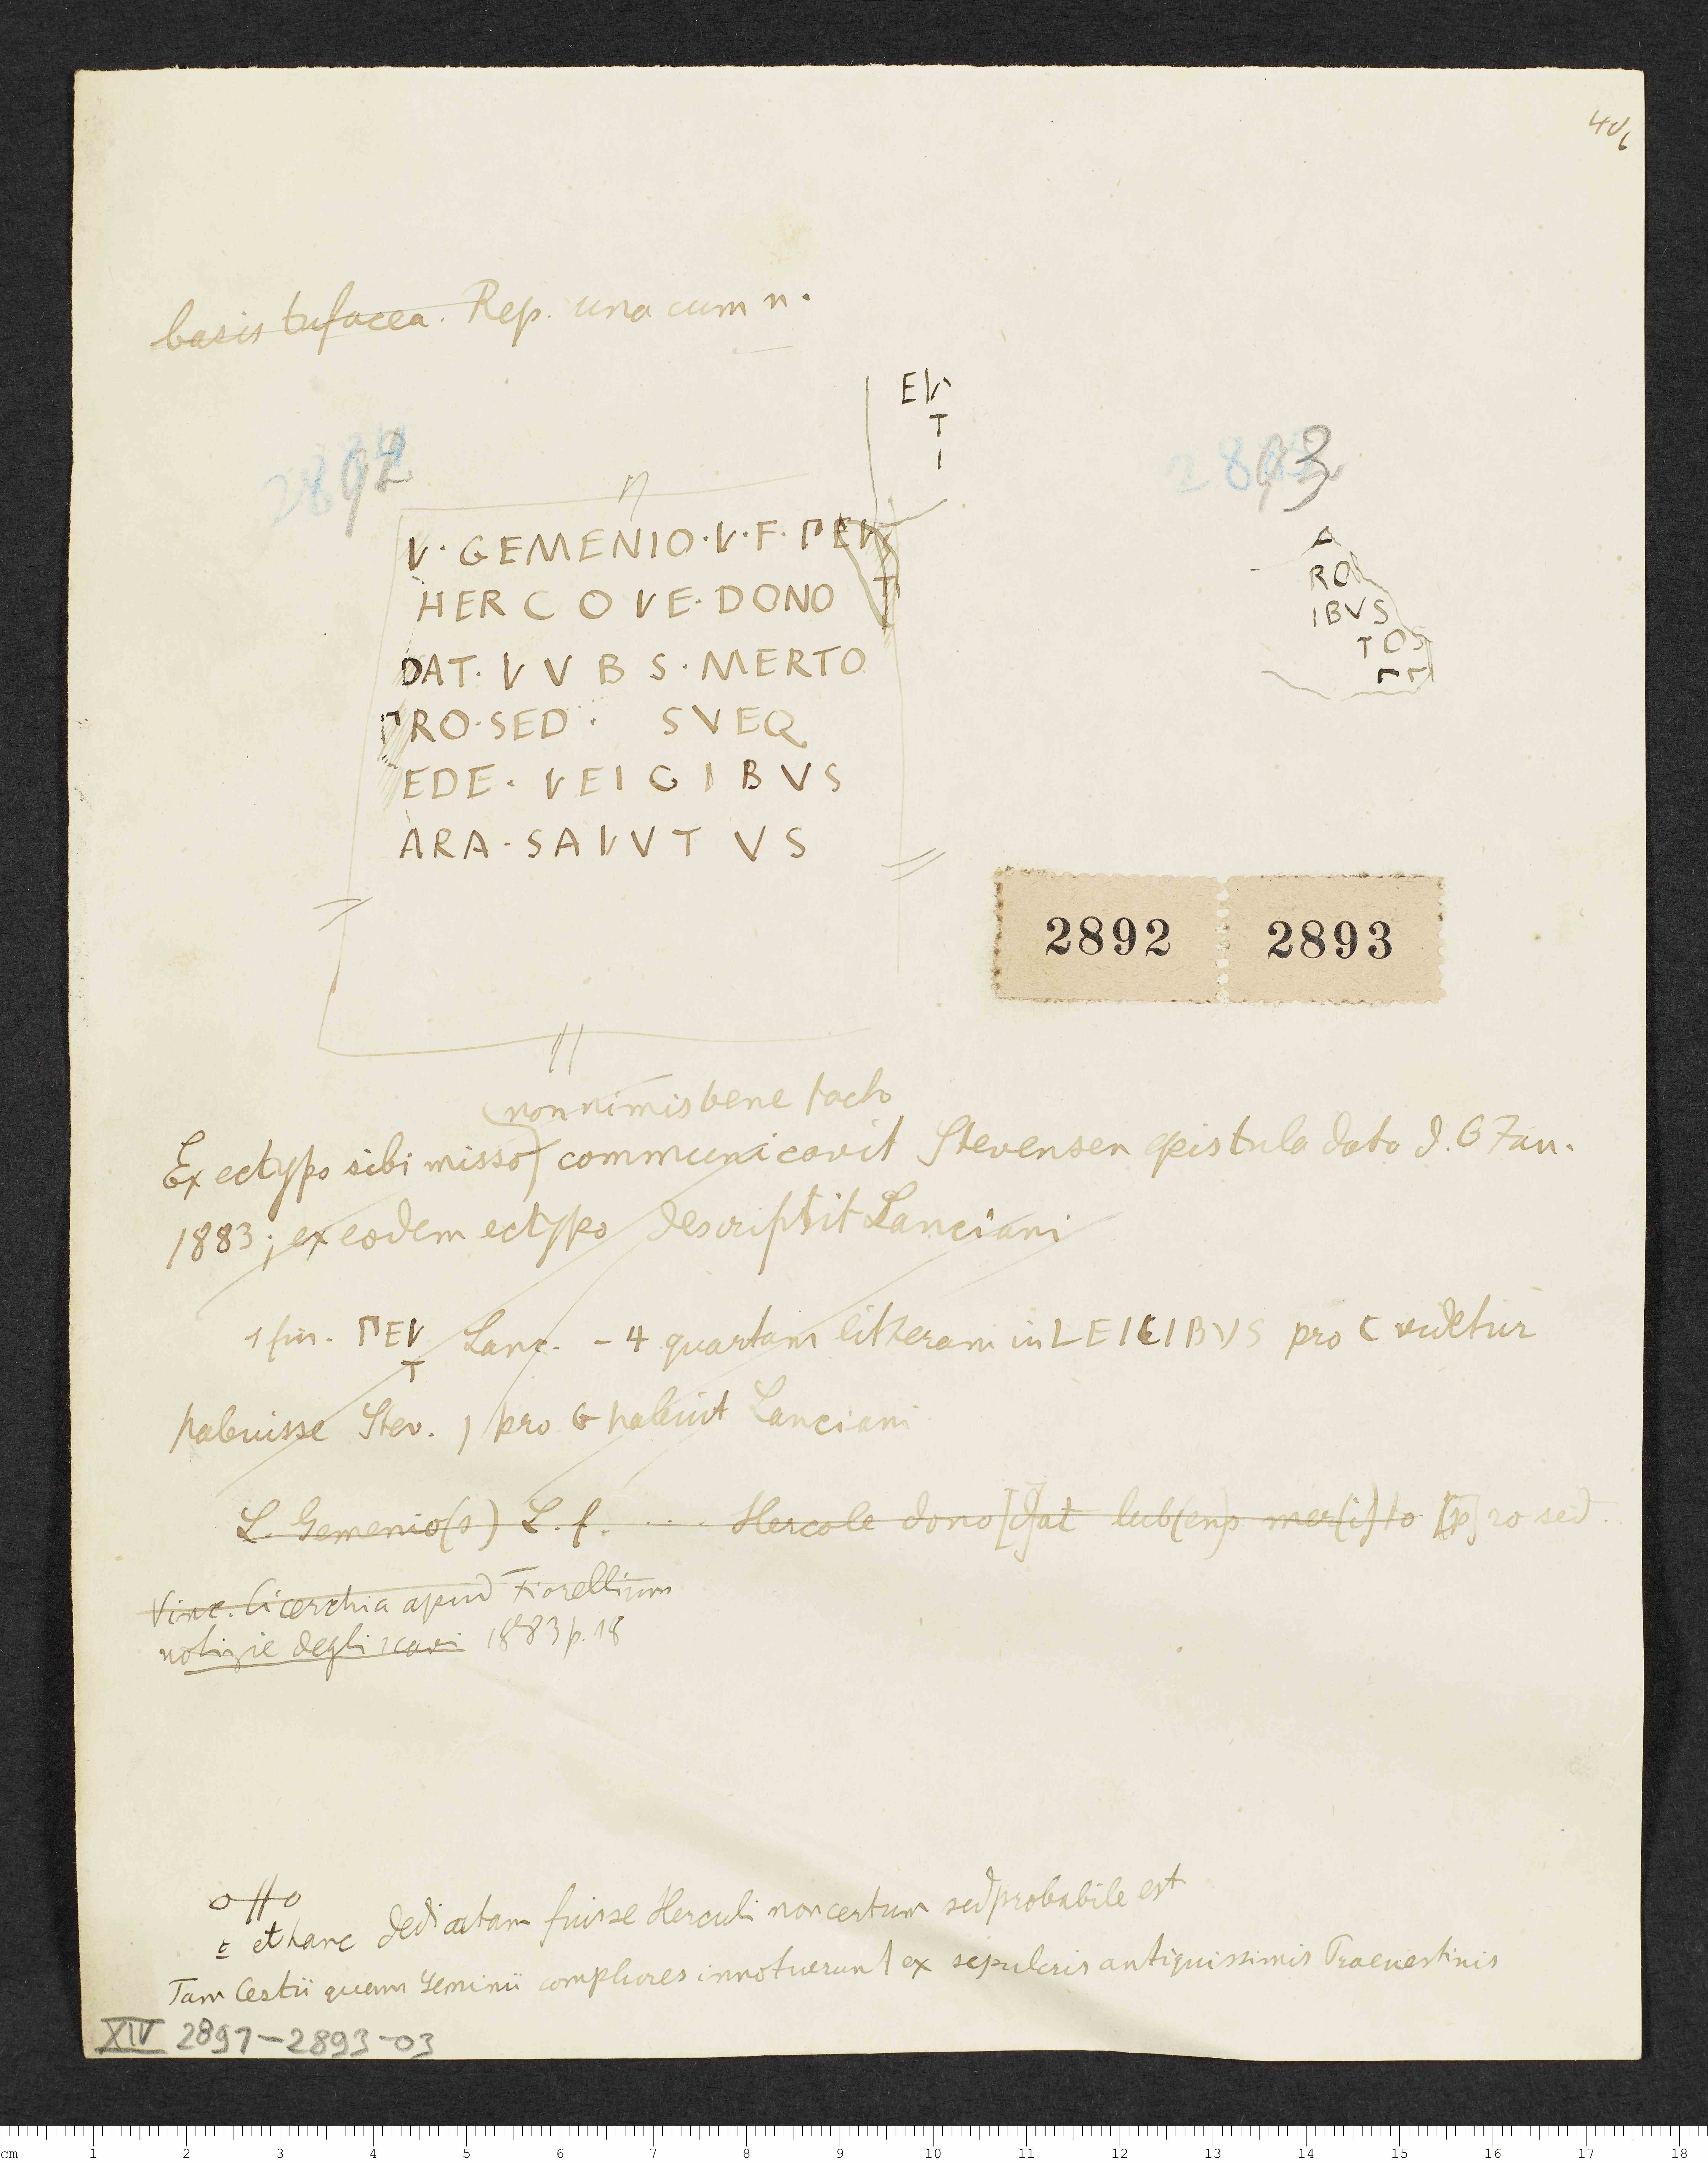 basis tufacea. Rep. una cum n.
EV
T
I
2892
2893
V·GEMENIO·V·F·ΓEV
HERCOVE·DONO T
DAT·VVBS·MERTO
ΓRO·SED· SVEQ
EDE·VEIGIBVS
ARA·SAVVTVS
RO
IBVS
TOS
ΓΓ
2892 2893
non nimis bene facto
Ex ectypo sibi misso communicavit Stevenson epistula data d. 6 Jan.
1883; ex eodem ectypo descripsit Lanciani
1 fin. ΓEV Lanc. – 4 quartam litteram in LEICIBVS pro C videtur
T
habuisse Stev., pro G habuit Lanciani
L. Gemenio(s) L. f. .... Hercole dono [d]at lub(en)s mer(i)to [p]ro sed.
Vinc. Cicerchia apud Fiorellium
notizie degli scavi 1883 p. 18
et hanc dedicatam fuisse Herculi non certum sed probabile est
Tam Cestii quam Geminii complures innotuerunt ex sepulcris antiquissimis Praenestinis
XIV 2891–2893-03
cm 1 2 3 4 5 6 7 8 9 10 11 12 13 14 15 16 17 18